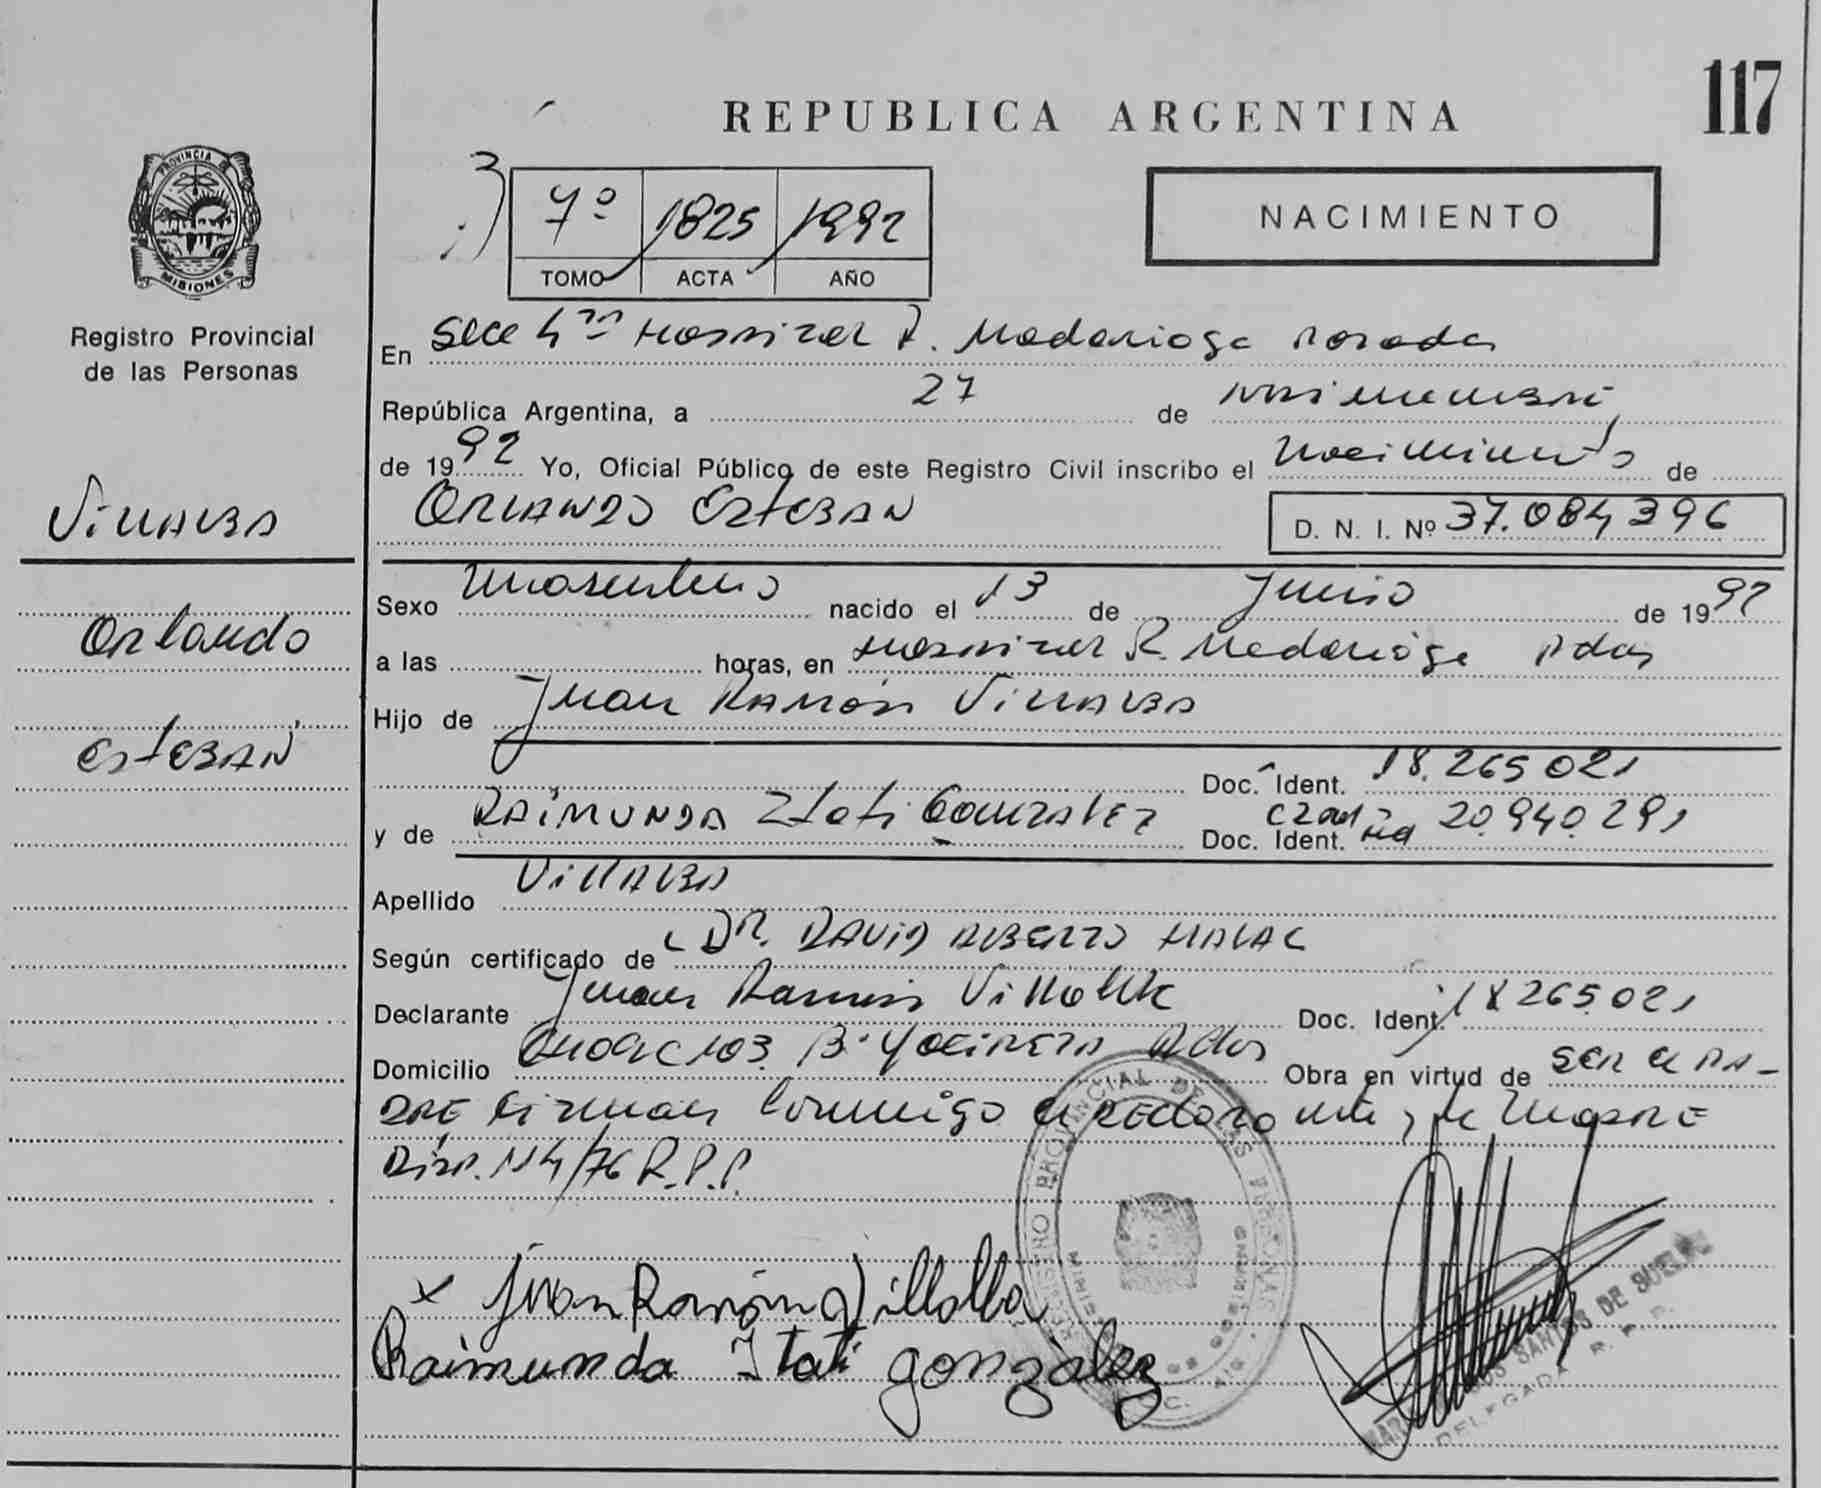 117
REPUBLICA ARGENTINA
NACIMIENTO
7º 1825 1992
TOMO ACTA AÑO
PROVINCIA DE
MISIONES
Registro Provincial
de las Personas
Villalba
Orlando
Esteban
En Secc 4ta Hospital R. Madariaga Posadas
República Argentina, a 27 de noviembre
de 1992 Yo, Oficial Público de este Registro Civil inscribo el Nacimiento de
Orlando Esteban
D. N. I. Nº 37.084.396
Sexo Masculino nacido el 13 de Junio de 1992
a las horas, en Hospital R. Madariaga Pdas
Hijo de Juan Ramón Villalba
Doc. Ident. 18.265.021
y de Raimunda Itatí González Doc. Ident. 20.940.291
Apellido Villalba
Según certificado de Dr. David Alberto
Declarante Juan Ramón Villalba Doc. Ident. 18.265.021
Domicilio 103 Bº Yacireta Pdas Obra en virtud de ser el pa-
dre firman conmigo el declarante y la madre
Disp. 114/76 R.P.P.
x Juan Ramón Villalba
Raimunda Itati gonzalez
REGISTRO PROVINCIAL DE LAS PERSONAS
SANTOS DE
DELEGADA R. P. P.